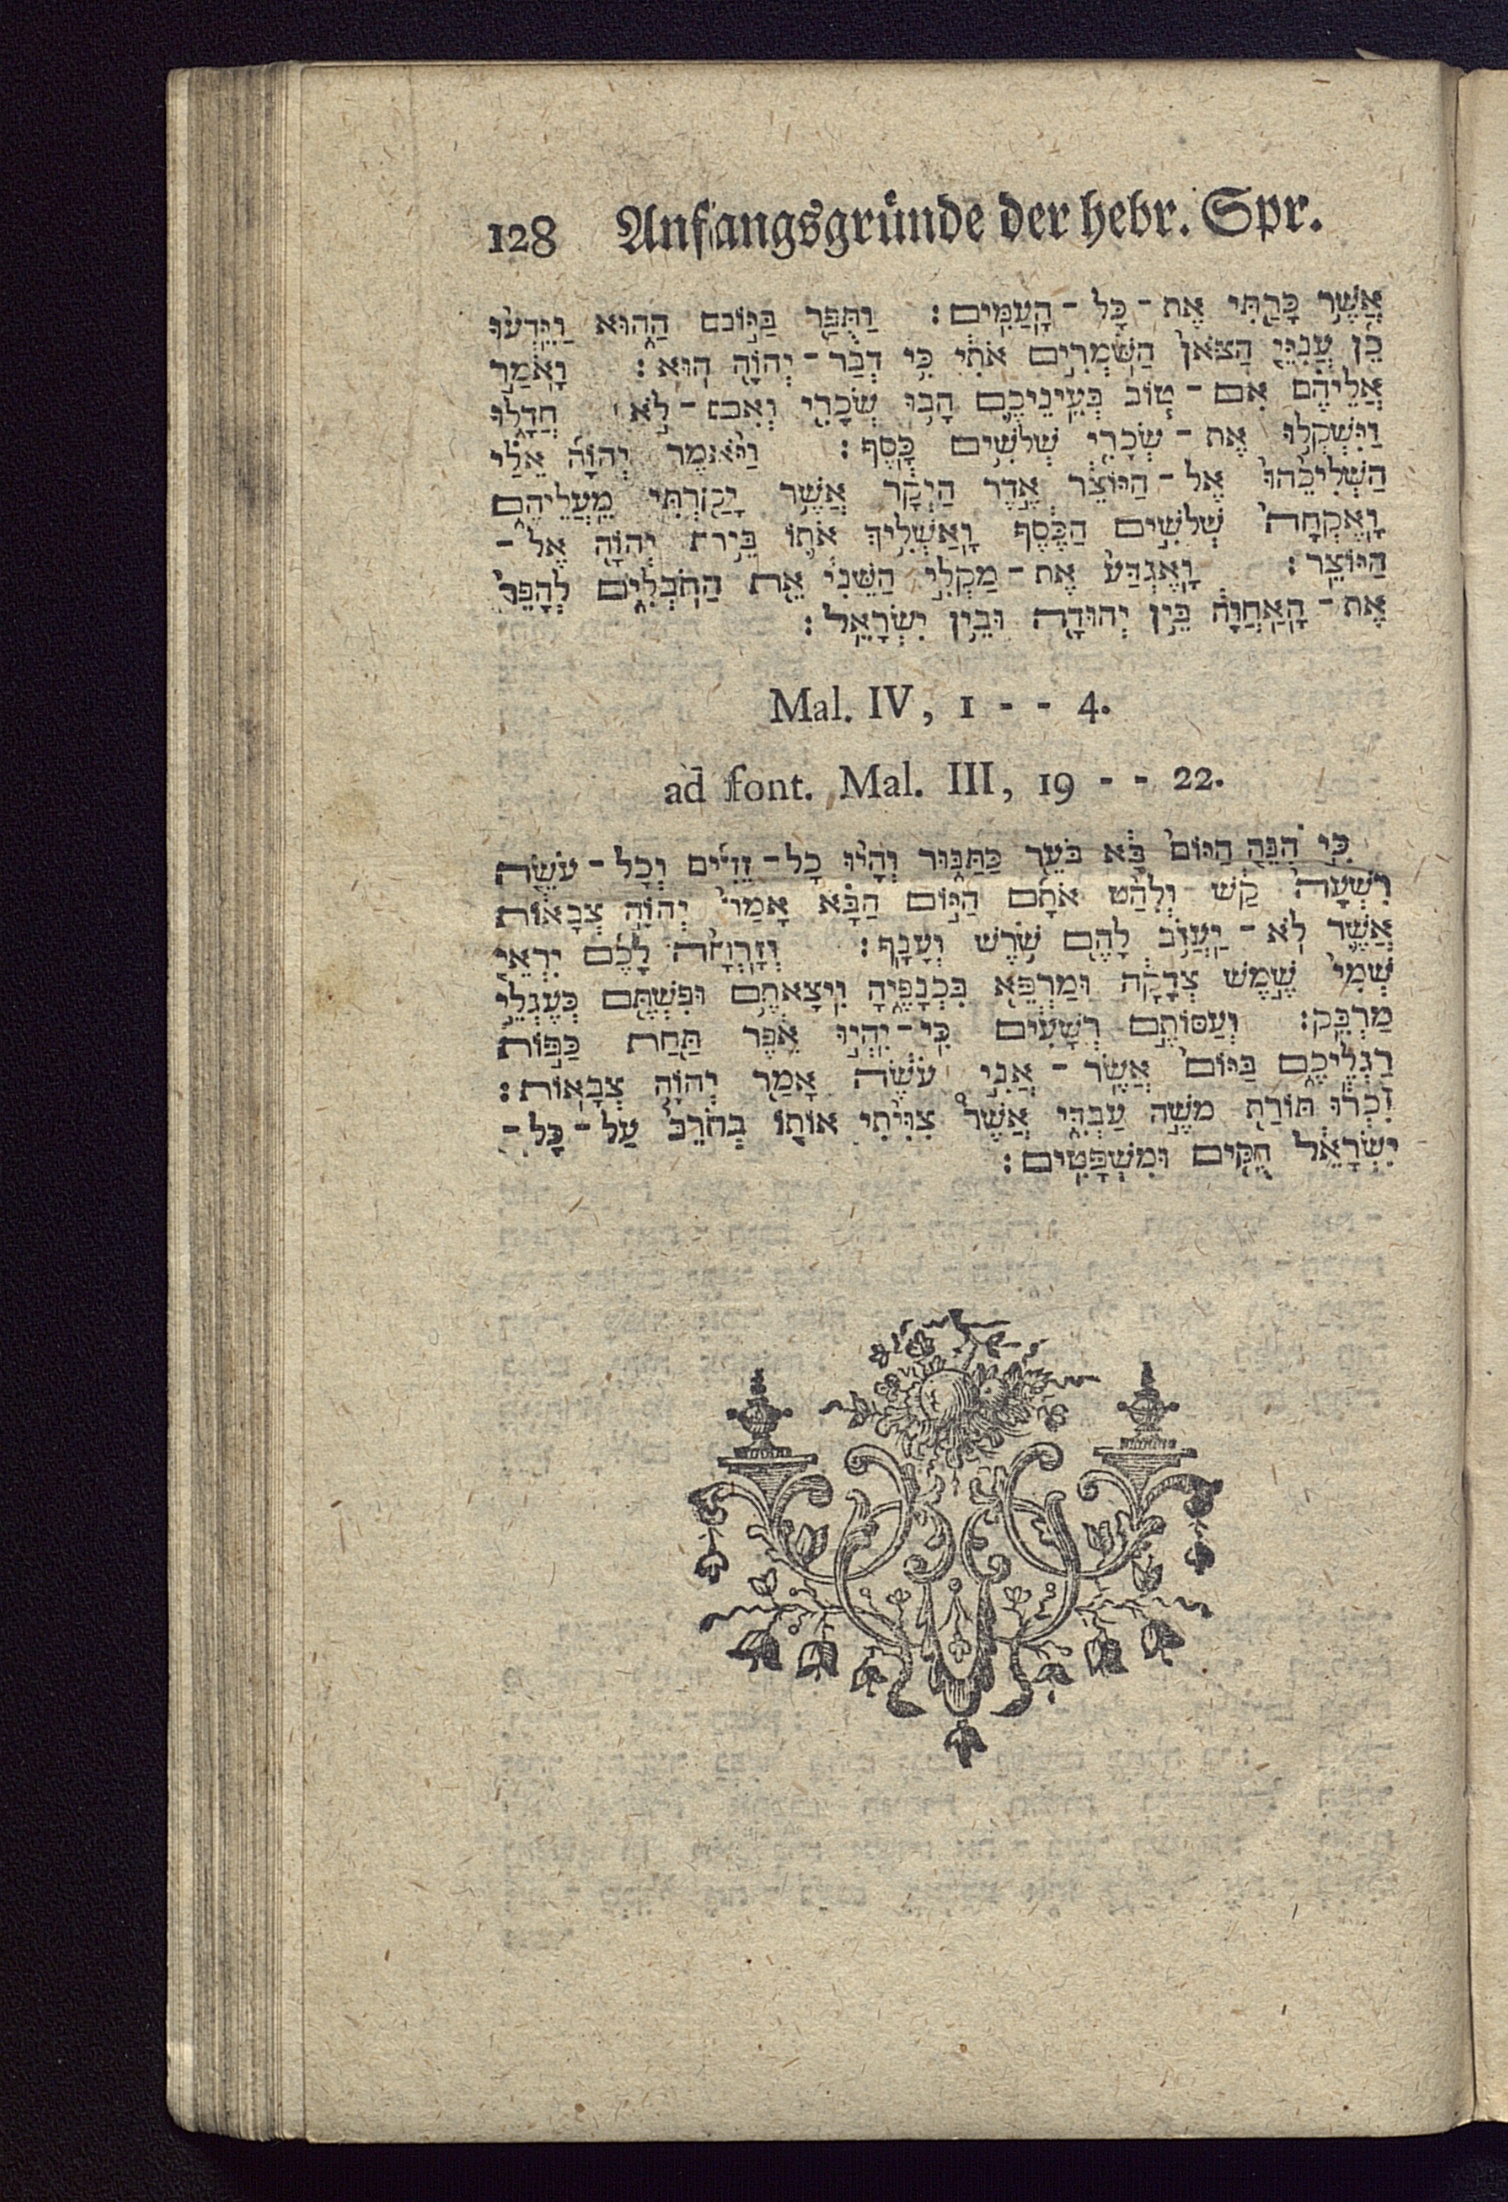 128 Anfangsgründe der hebr. Spr.
אֲשֶׁ֥ר כָּרַ֖תִּי אֶת־כָּל־הָֽעַמִּֽים׃ וַתֻּפַ֖ר בַּיּ֣וֹם הַה֑וּא וַיֵּֽדְע֨וּ
כֵ֜ן עֲנִיֵּ֤י הַצֹּאן֙ הַשֹּׁמְרִ֣ים אֹתִ֔י כִּ֥י דְבַר־יְהוָֹ֖ה הֽוּא׃ וָֽאֹמַ֣ר
אֲלֵיהֶ֗ם אִם־ט֧וֹב בְּעֵֽינֵיכֶ֛ם הָב֥וּ שְׂכָרִ֖י וְאִם־לֹ֣א חֲדָ֑לוּ
וַיִּשְׁקְל֥וּ אֶת־שְׂכָרִ֖י שְׁלֹשִׁ֥ים כָּֽסֶף׃ וַיֹּ֨אמֶר יְהוָֹ֜ה אֵלַ֗י
הַשְׁלִיכֵ֨הוּ֙ אֶל־הַיּוֹצֵ֔ר אֶ֣דֶר הַיְקָ֔ר אֲשֶׁ֥ר יָקַ֖רְתִּי מֵֽעֲלֵיהֶ֑ם
וָֽאֶקְחָה֙ שְׁלֹשִׁ֣ים הַכֶּ֔סֶף וָֽאַשְׁלִ֥יךְ אֹת֛וֹ בֵּ֥ית יְהוָֹ֖ה אֶל־
הַיּוֹצֵֽר׃ וָֽאֶגְדַּע֙ אֶת־מַקְלִ֣י הַשֵּׁנִ֔י אֵ֖ת הַחֹֽבְלִ֑ים לְהָפֵר֙
אֶת־הָֽאַֽחֲוָ֔ה בֵּ֥ין יְהוּדָ֖ה וּבֵ֥ין יִשְׂרָאֵֽל׃
Mal. IV, 1 - - 4.
ad font. Mal. III, 19 - - 22.
כִּ֤י הִנֵּ֤ה הַיּוֹם֙ בָּ֔א בֹּעֵ֖ר כַּתַּנּ֑וּר וְהָי֨וּ כָל־זֵדִ֜ים וְכָל־עֹשֵׂ֤ה
רִשְׁעָה֙ קַ֔שׁ וְלִהַ֨ט אֹתָ֜ם הַיּ֣וֹם הַבָּ֗א אָמַר֙ יְהוָֹ֣ה צְבָא֔וֹת
אֲשֶׁ֛ר לֹֽא־יַֽעֲזֹ֥ב לָהֶ֖ם שֹׁ֥רֶשׁ וְעָנָֽף׃ וְזָֽרְחָ֨ה לָכֶ֜ם יִרְאֵ֤י
שְׁמִי֙ שֶׁ֣מֶשׁ צְדָקָ֔ה וּמַרְפֵּ֖א בִּכְנָפֶ֑יהָ וִֽיצָאתֶ֥ם וּפִשְׁתֶּ֖ם כְּעֶגְלֵ֥י
מַרְבֵּֽק׃ וְעַסּוֹתֶ֣ם רְשָׁעִ֔ים כִּֽי־יִֽהְי֣וּ אֵ֔פֶר תַּ֖חַת כַּפּ֣וֹת
רַגְלֵיכֶ֑ם בַּיּוֹם֙ אֲשֶׁ֣ר־אֲנִ֣י עֹשֶׂ֔ה אָמַ֖ר יְהוָֹ֥ה צְבָאֽוֹת׃
זִכְר֕וּ תּוֹרַ֖ת מֹשֶׁ֣ה עַבְדִּ֑י אֲשֶׁר֩ צִוִּ֨יתִי אוֹת֤וֹ בְחֹרֵב֙ עַל־כָּל־
יִשְׂרָאֵ֔ל חֻקִּ֖ים וּמִשְׁפָּטִֽים׃